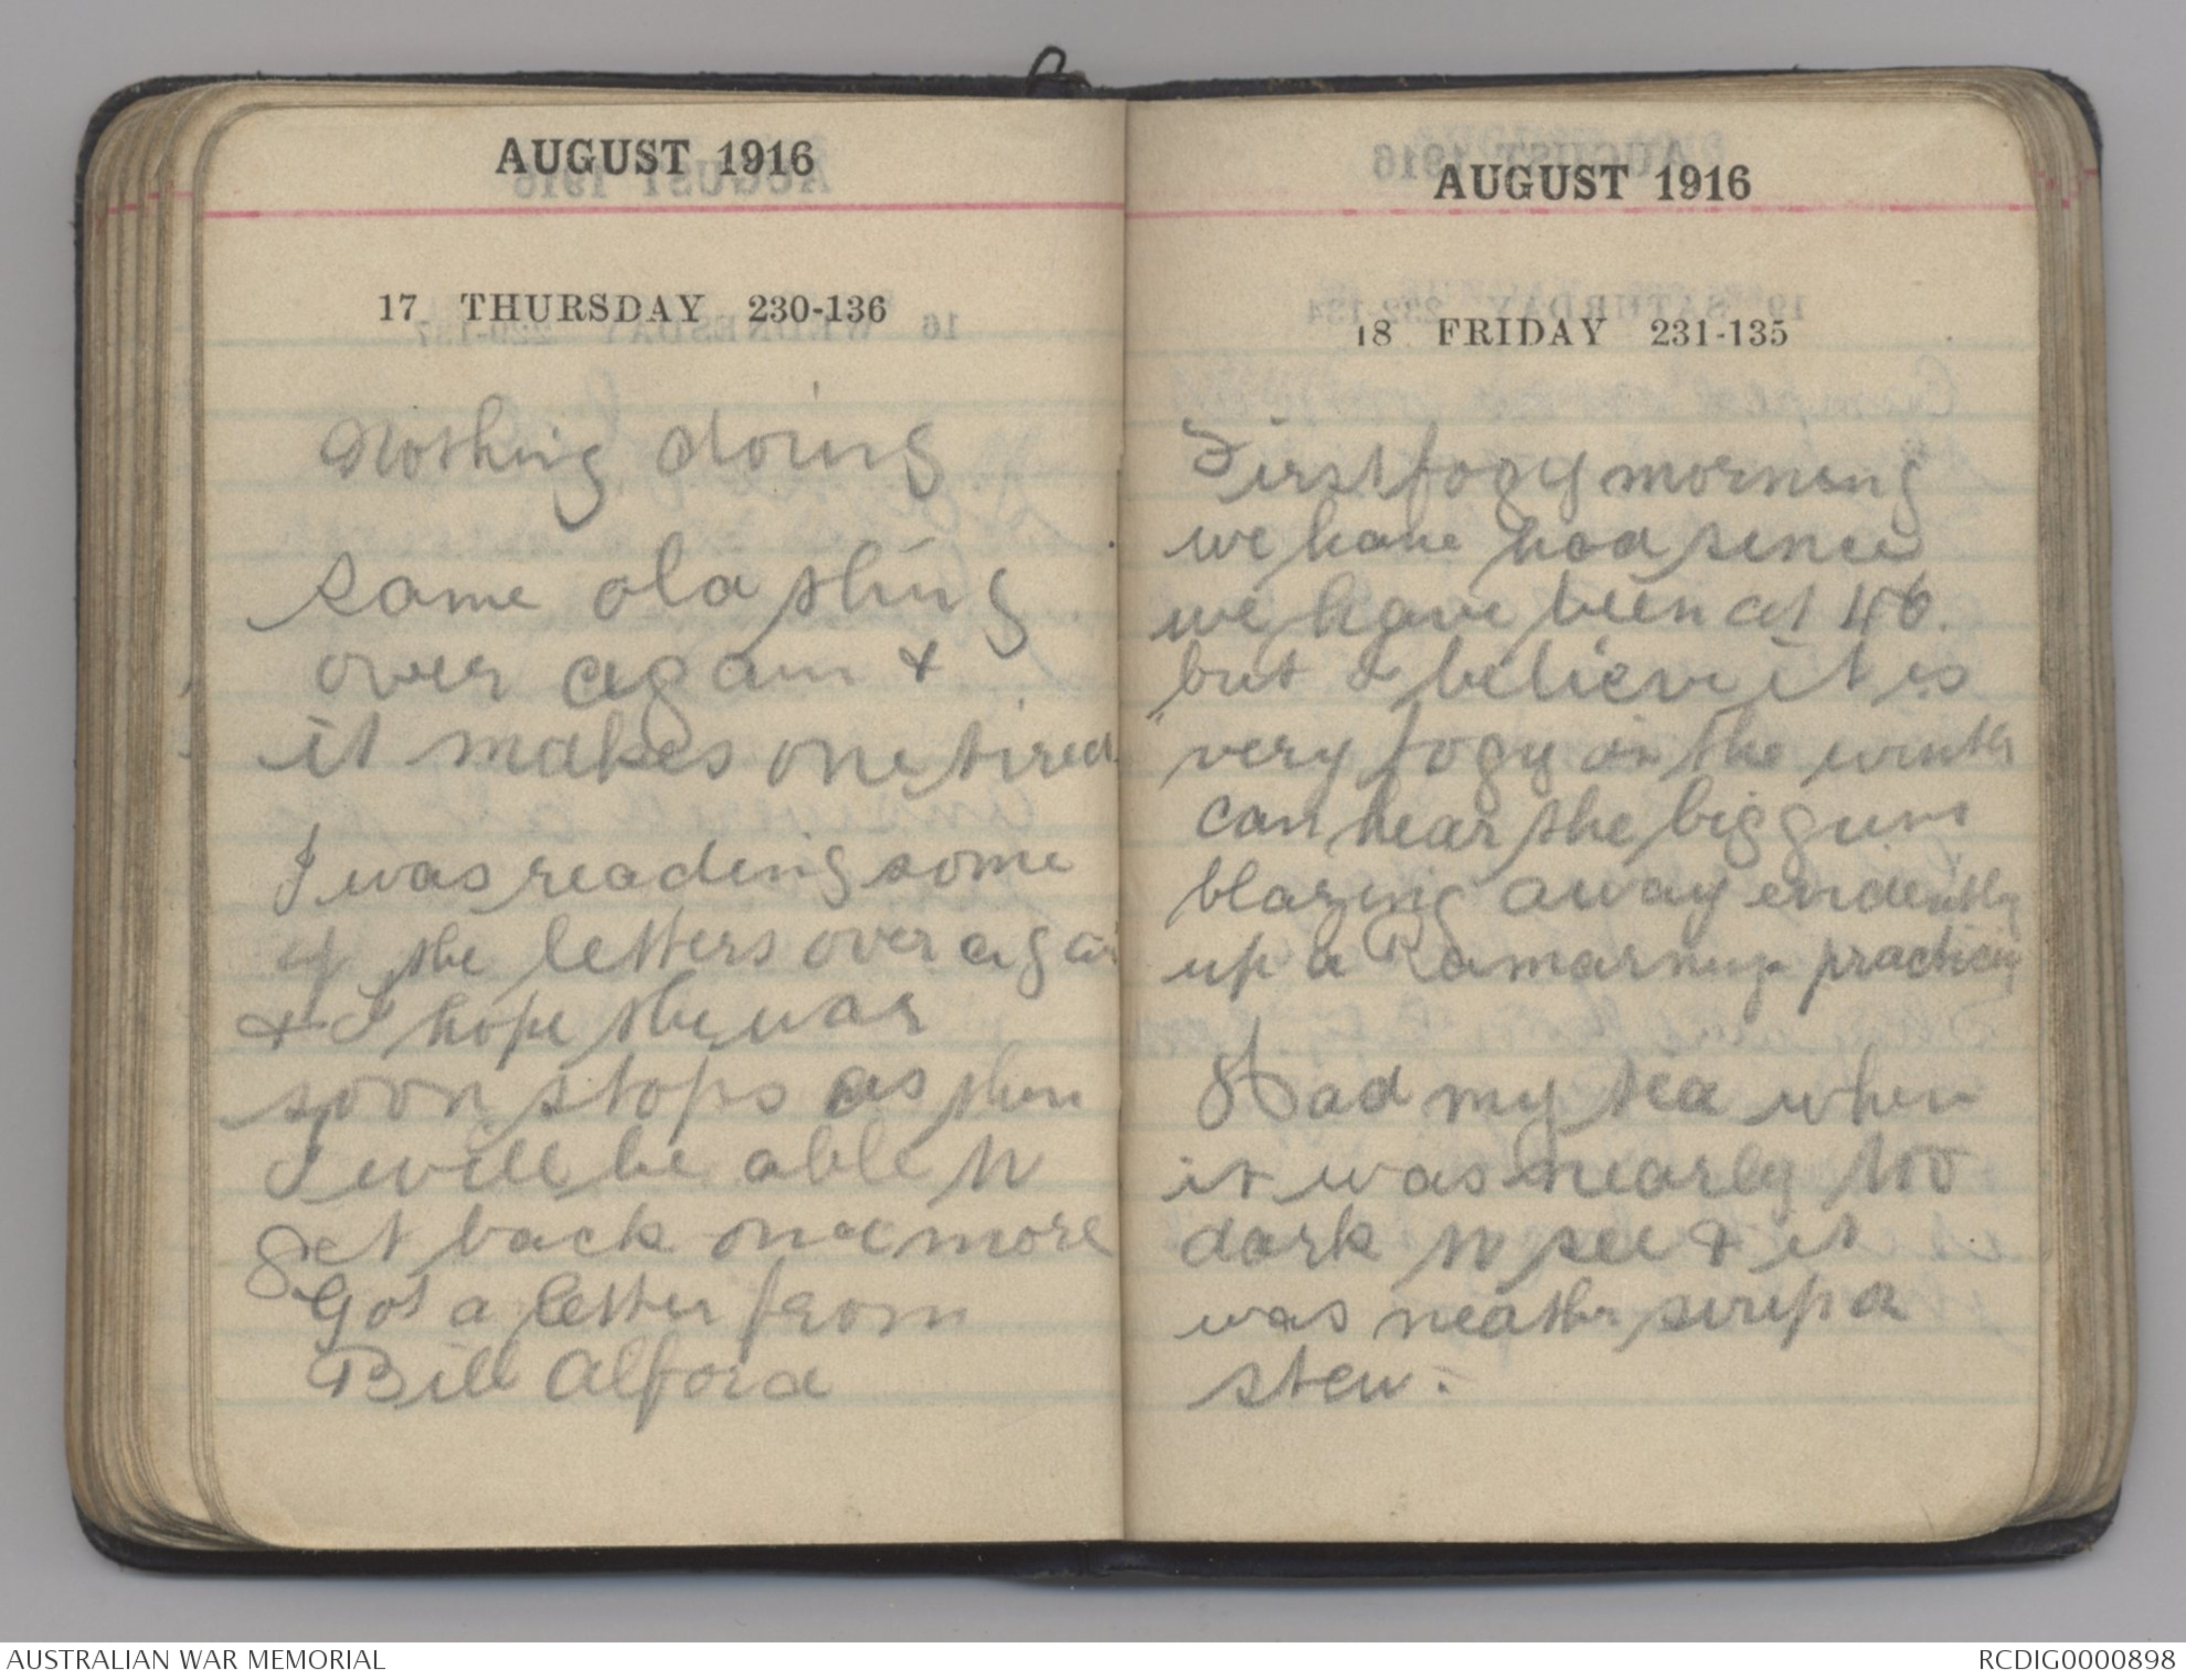 AUGUST 1916
17 THURSDAY 230-136
Nothing doing
same old thing
over again &
it makes one tired
I was reading some
of the letters over again
& I hope the war
soon stops as then
I will be able to
get back once more
Got a letter from
Bill Alford
AUGUST 1916
18 FRIDAY 231-135
First fogy morning
we have had since
we have been at 46.
but I believe it is
very fogy in the winter
can hear the big guns
blazing away evidently
up a practicing
Had my tea when
it was nearly too
dark to see & it
was neather a
stew.
AUSTRALIAN WAR MEMORIAL
RCDIG0000898